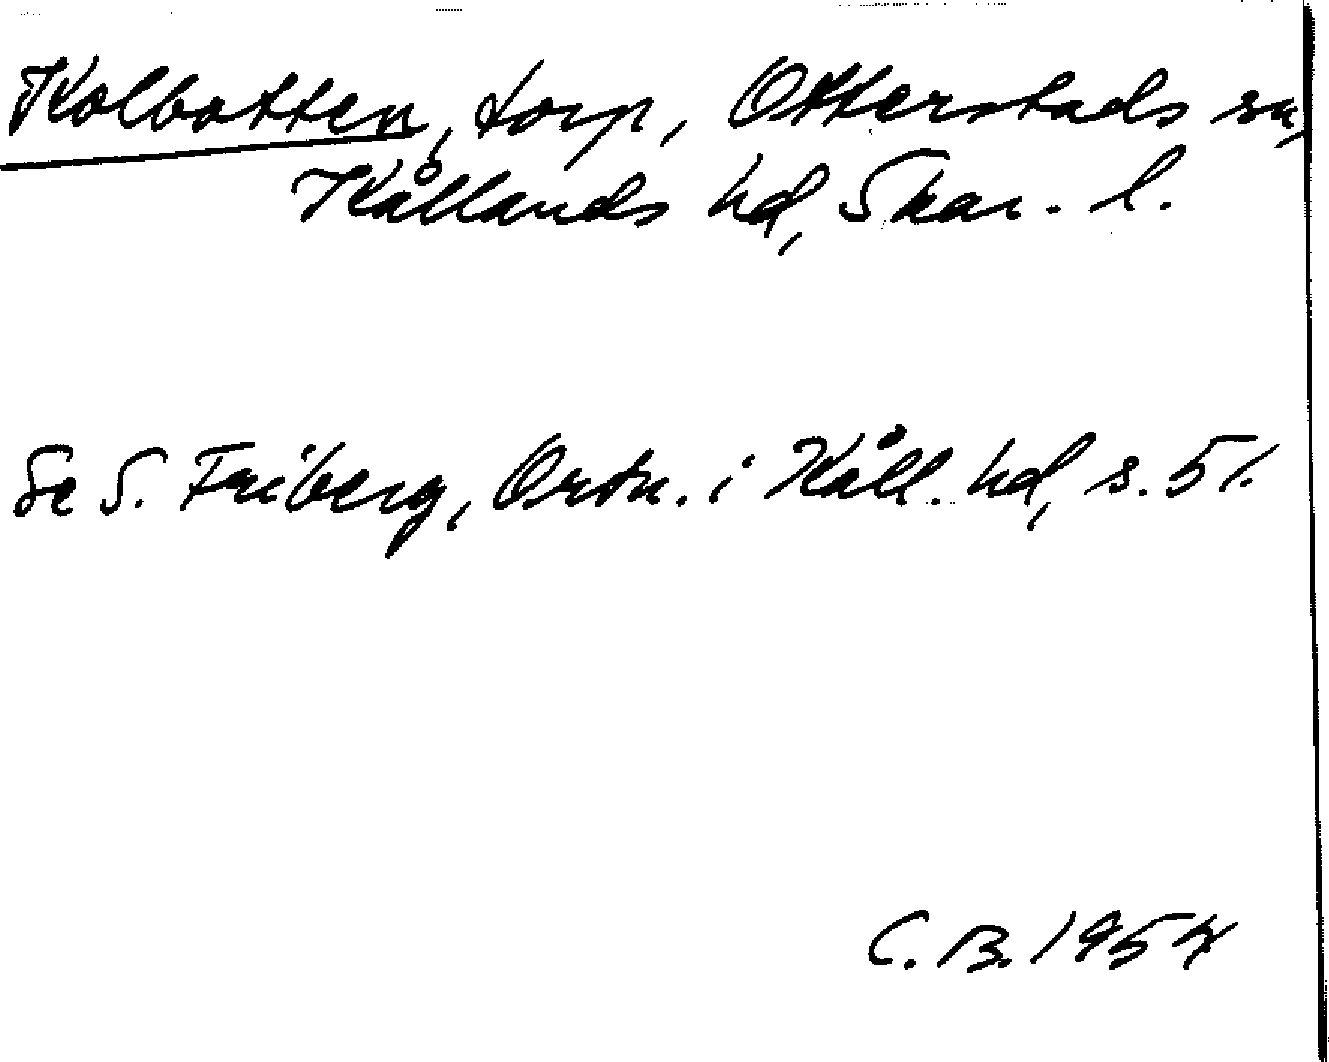 Kolbotten, torp, Otterstads sn,
Kållands hd, Skar. l.
Se S. Friberg, Ortn. i Kåll. hd, s. 51.
C. B. 1957